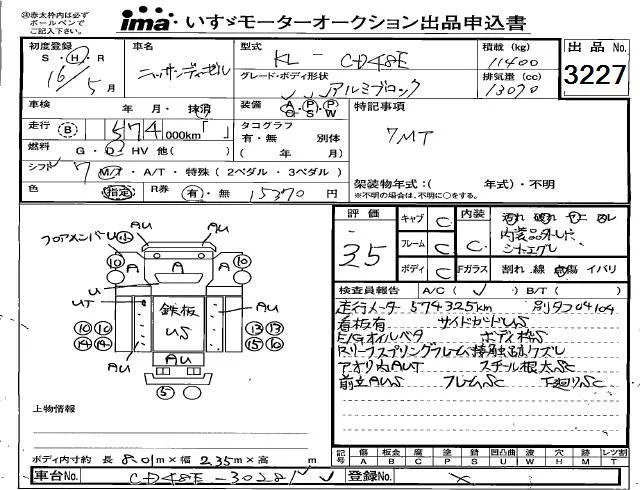 ㊟赤太枠内は必ず
ボールペンで
ご記入下さい。
ima いすゞモーターオークション出品申込書
初度登録 車名 型式 積載 (kg) 出品No.
S・H・R 16年 5月 ニッサンディーゼル KL－CD48E 11400
グレード・ボディ形状 アルミブロック 排気量 (cc) 13070 3227
車検 年 月・抹消 装備 A/C P/S P/W 特記事項
走行 B 574,000km「 」 タコグラフ 有・無 別体 7MT
燃料 G・D・HV 他( ) ( 年 月)
シフト 7 M/T・A/T・特殊 (2ペダル・3ペダル) 架装物年式:( 年式)・不明
色 指定 R券 有・無 15370円 ※不明の場合は、不明に○をする。
評価 3.5 キャブ C 内装 C 汚れ 破れ
フレーム C 内装品外し
ボディ C Fガラス 割れ 線 点傷 イバリ
検査員報告 A/C( ✓ ) B/T( )
走行メーター 574325km 別タコ04104
看板有 サイドガードUS
E/Gオイルベタ ボディ枠S
Rリーフスプリングフレーム接触跡クズレ
アオリ内AUT スチール根太SC
前立AUS フレームSC 下廻りSC
フロアメンバーU ⑯ AU AU
⑩ A A A ⑩
U
UT 鉄板 US AU
⑩ ⑩ ⑬ ⑬
⑭ ⑭ ⑮ ⑯
AU
⑤
上物情報
ボディ内寸約 長 8.01m×幅 2.35m×高 m
記号 傷A 板金B 腐C 塗P 錆S 凹凸曲U 波W 穴H 跡M レツ割T
車台No. CD48E－30281 登録No. ×